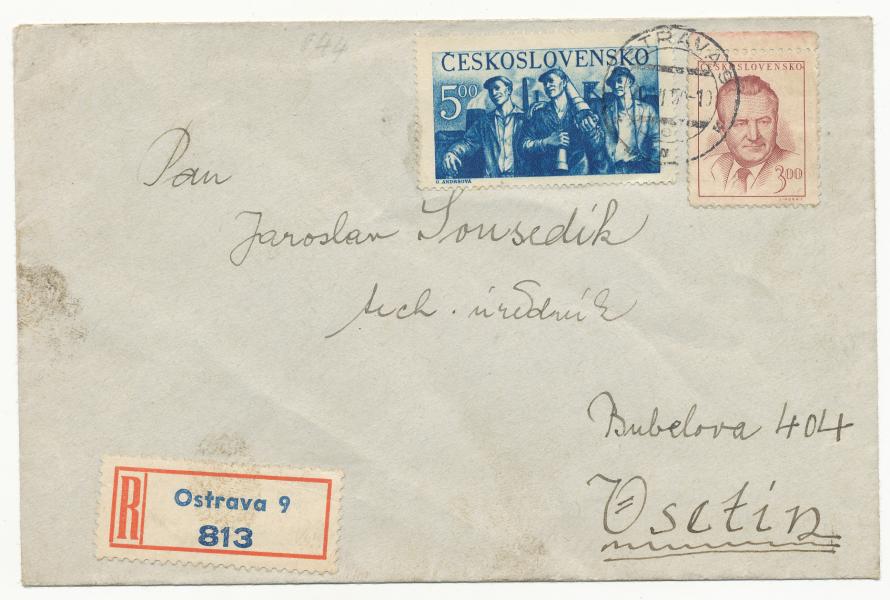 644
ČESKOSLOVENSKO
5.00
ČESKOSLOVENSKO
3.00
OSTRAVA 9
Pan
Jaroslav Sousedík
tech. úředník
Bubelova 404
Vsetín
R
Ostrava 9
813